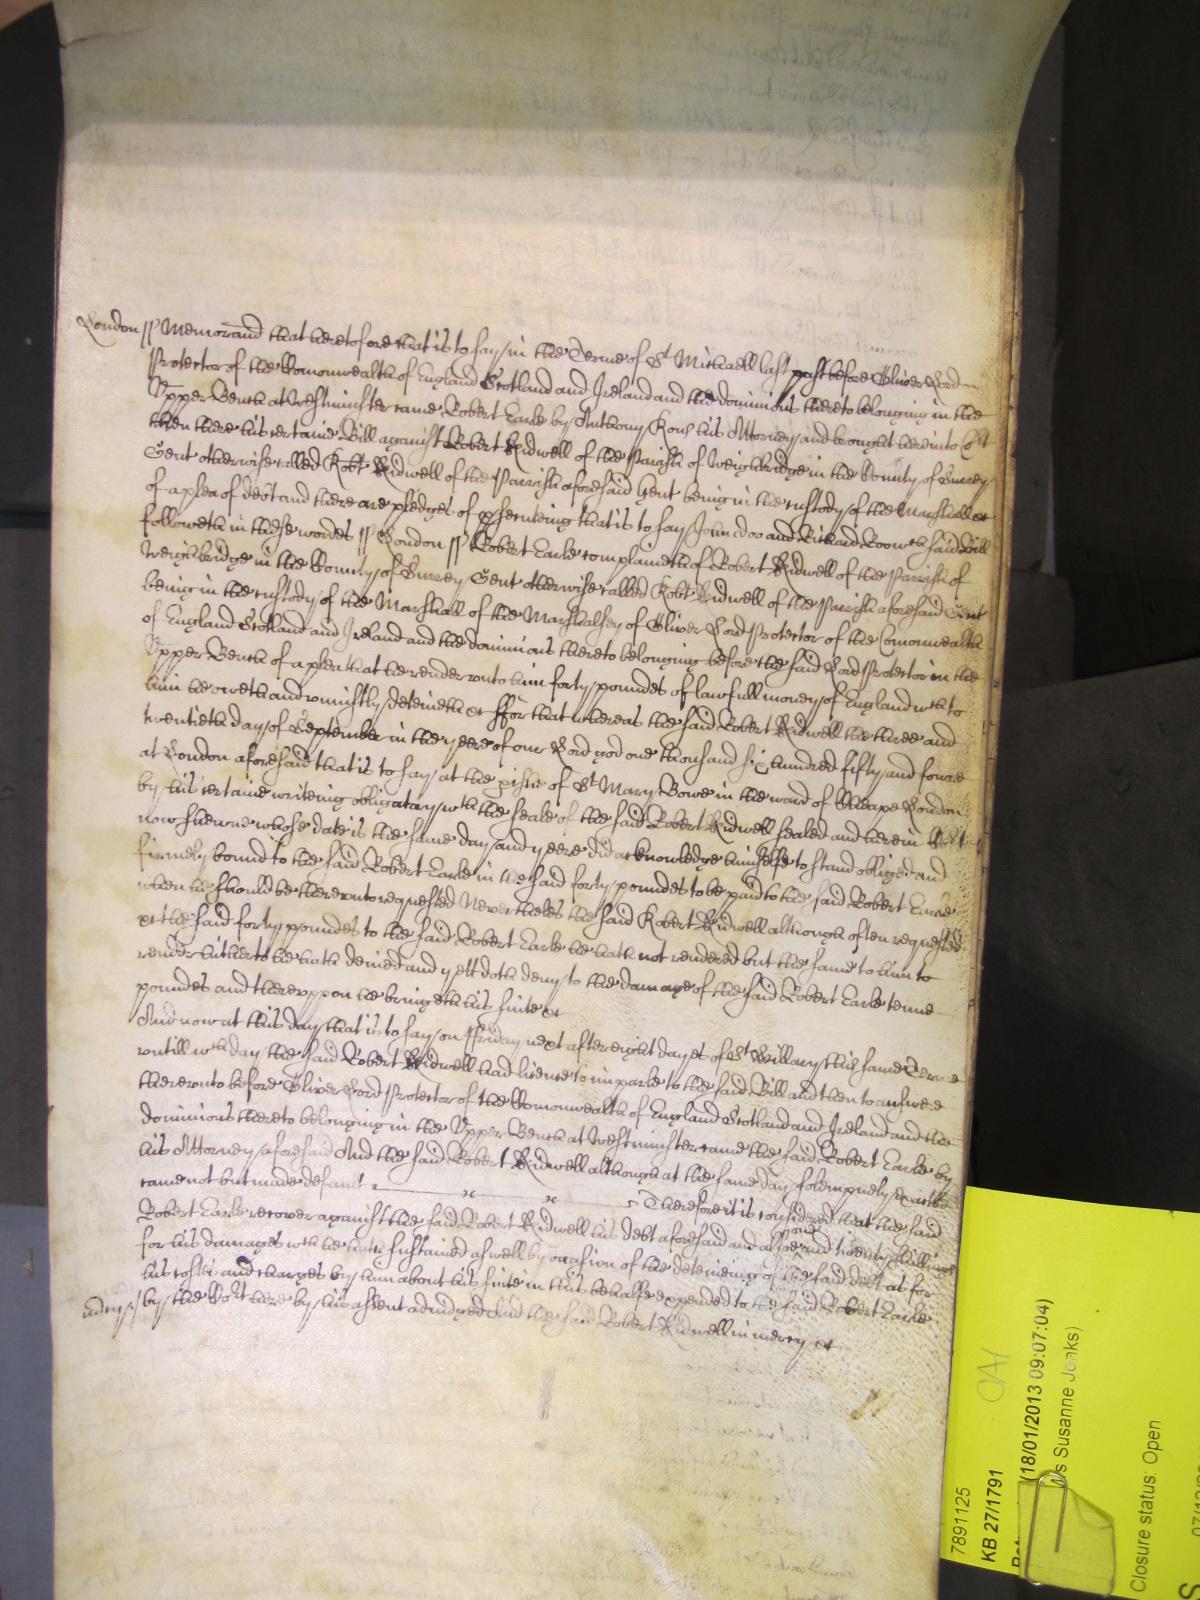 London ss Memorand that heretofore that is to say in the Terme of St Michaell last past before Oliver Lord
Protector of the Comonwealth of England Scotland and Ireland and the dominions thereto belonging in the
Vpper Bench at Westminster came Robert Earle by Anthony his Attorney and brought here into Cort
then there his certaine Bill against Robert Kidwell of the Parish of Weighbridge in the County of Surrey
Gent otherwise called Robt Kidwell of the Parrish aforesaid Gent being in the custody of the Marshall et
of a plea of debt and there are pledges of psecuteing that is to say John doo and Richard Roo wch said Bill
followeth in these wordes ss London ss Robert Earle complaineth of Robert Kidwell of the Parrish of
Weighbridge in the County of Surrey Gent otherwise called Robt Kidwell of the Parrish aforesaid Gent
being in the custody of the Marshall of the Marshalsey of Oliver Lord Protector of the Comonwealth
of England Scotland and Ireland and the dominions thereto belonging before the said Lord Protector in the
Vpper Bench of a plea that he render vnto him forty poundes of lawfull money of England wch to
him he oweth and vniustly deteineth et ffor that whereas the said Robert Kidwell the three and
twentieth day of September in the yeere of our Lord god one thousand six hundred fifty and foure
at London aforesaid that is to say at the pish of St Mary Bowe in the ward of Cheape London
by his certaine writeing obligatory wth the seale of the said Robert Kidwell sealed and here in Cort
now shewne whose date is the same day and yeere did acknowledge himselfe to stand obliged and
firmely bound to the said Robert Earle in the said forty poundes to be paid to the said Robert Earle
when he should be therevnto requested Neverthelesse the said Robert Kidwell although often requested
et the said forty poundes to the said Robert Earle he hath not rendered but the same to him to
render hitherto he hath denied and yett doth deny to the damage of the said Robert Earle tenne
poundes and therevppon he bringeth his suite et
And now at this day that is to say on ffriday next after eight dayes of St Hillary this same Terme
vntill wch day the said Robert Kidwell had licence to imparle to the said Bill and then to answere
therevnto before Oliver Lord Protector of the Comonwealth of England Scotland and Ireland and the
dominions thereto belonging in the Vpper Bench at Westminster came the said Robert Earle by
his Attorney aforesaid And the said Robert Kidwell although at the same day solempnely exacted
came not but made default Therefore it is considered that the said
Robert Earle recover against the said Robert Kidwell his debt aforesaid and also one and twenty shillings
for his damages wch he hath sustained aswell by occasion of the deteineing of the said debt as for
his costs and charges by him about his suite in this behalfe expended to the said Robert Earle
by the Cort here by his assent adiudged And the said Robert Kidwell in mercy et
7891125
KB 27/1791
OA1
(18/01/2013 09:07:04)
s Susanne Jenks)
Closure status: Open